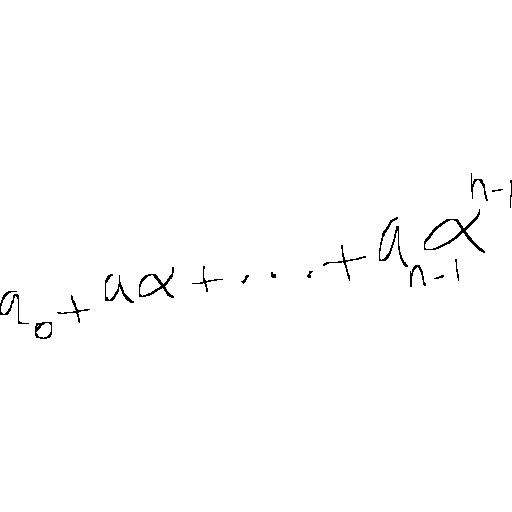 a_0 + aα + ... + a_{n-1} α^{n-1}